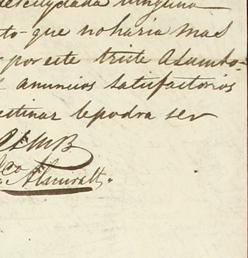 descuydada ninguna
to que no haria mas
por este triste Asumto-
anuncios satisfactorios
estinar le podra ser
B S M B
fco
Almiralt.